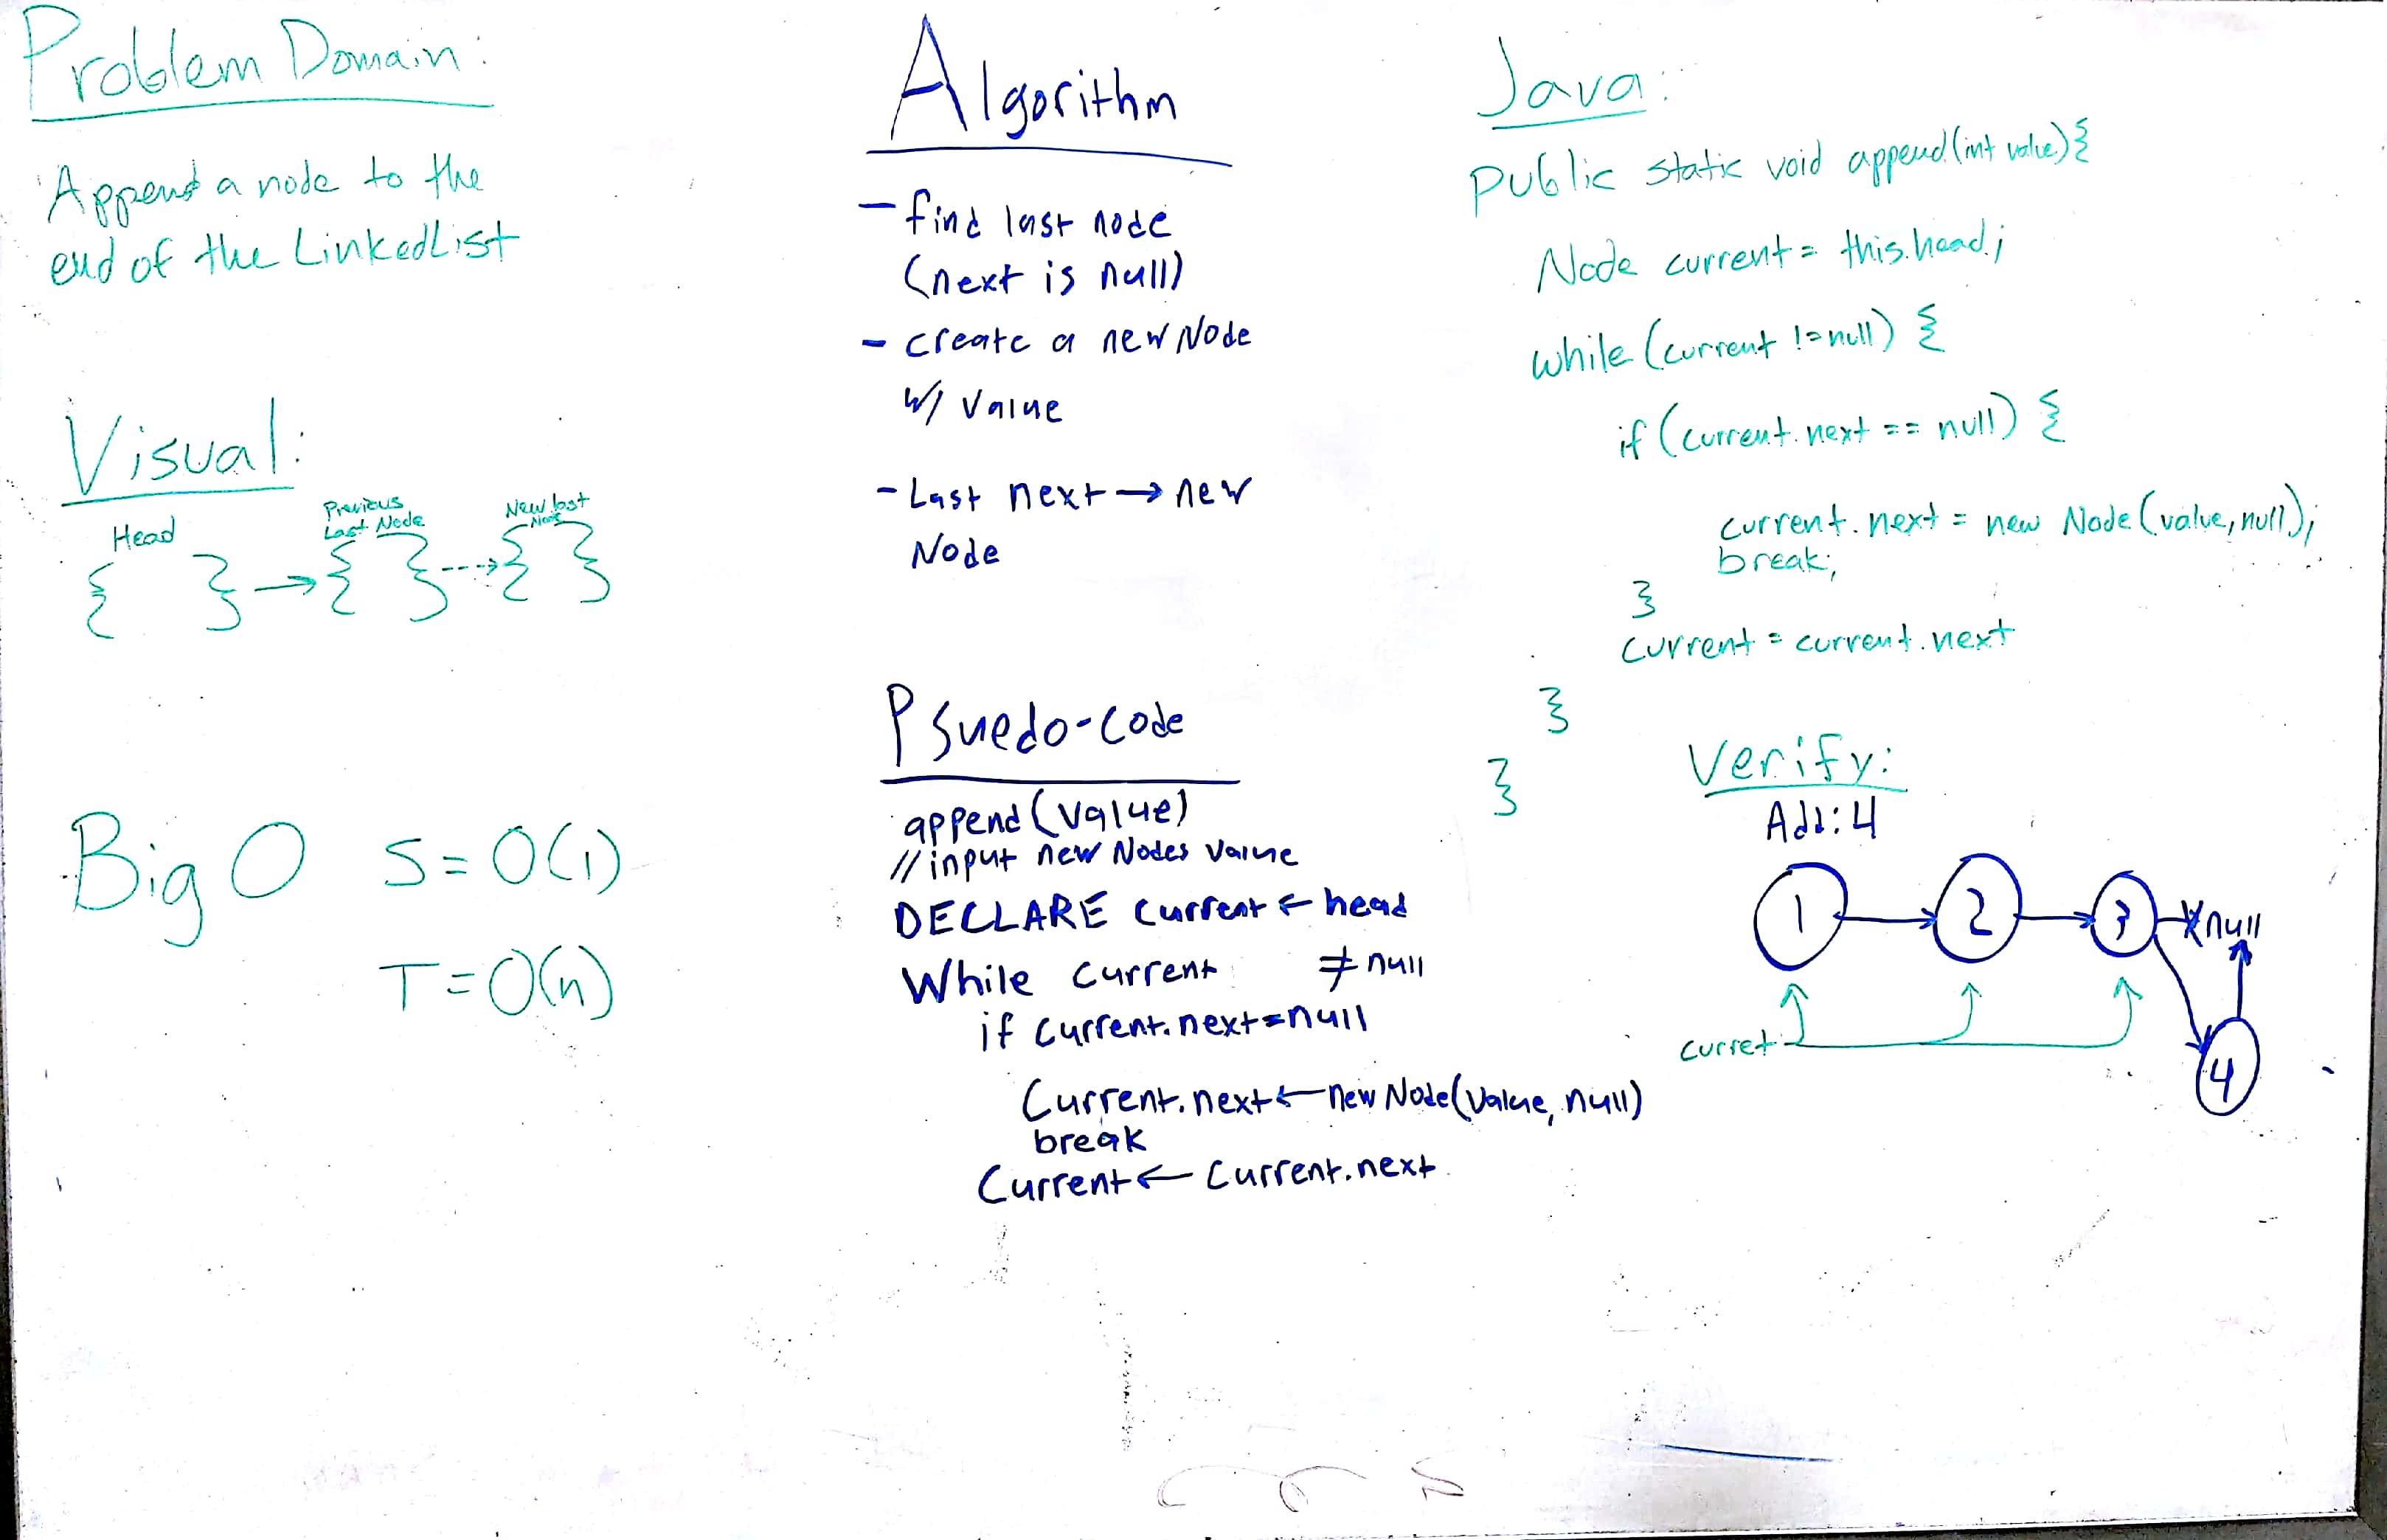 Problem Domain:
Append a node to the
end of the LinkedList
Visual:
Head
Previous
Last Node
New last
Node
{ } → { } ---> { }
Big O S = O(1)
T = O(n)
Algorithm
- find last node
(next is null)
- create a new Node
w/ value
- Last next → new
Node
Psuedo-code
append(value)
// input new Nodes value
DECLARE Current ← head
While Current ≠ null
if Current.next = null
Current.next ← new Node(value, null)
break
Current ← Current.next
Java:
public static void append(int value) {
Node current = this.head;
while (current != null) {
if (current.next == null) {
current.next = new Node(value, null);
break;
}
current = current.next
}
}
Verify:
Add: 4
1 2 3 null
curret
4